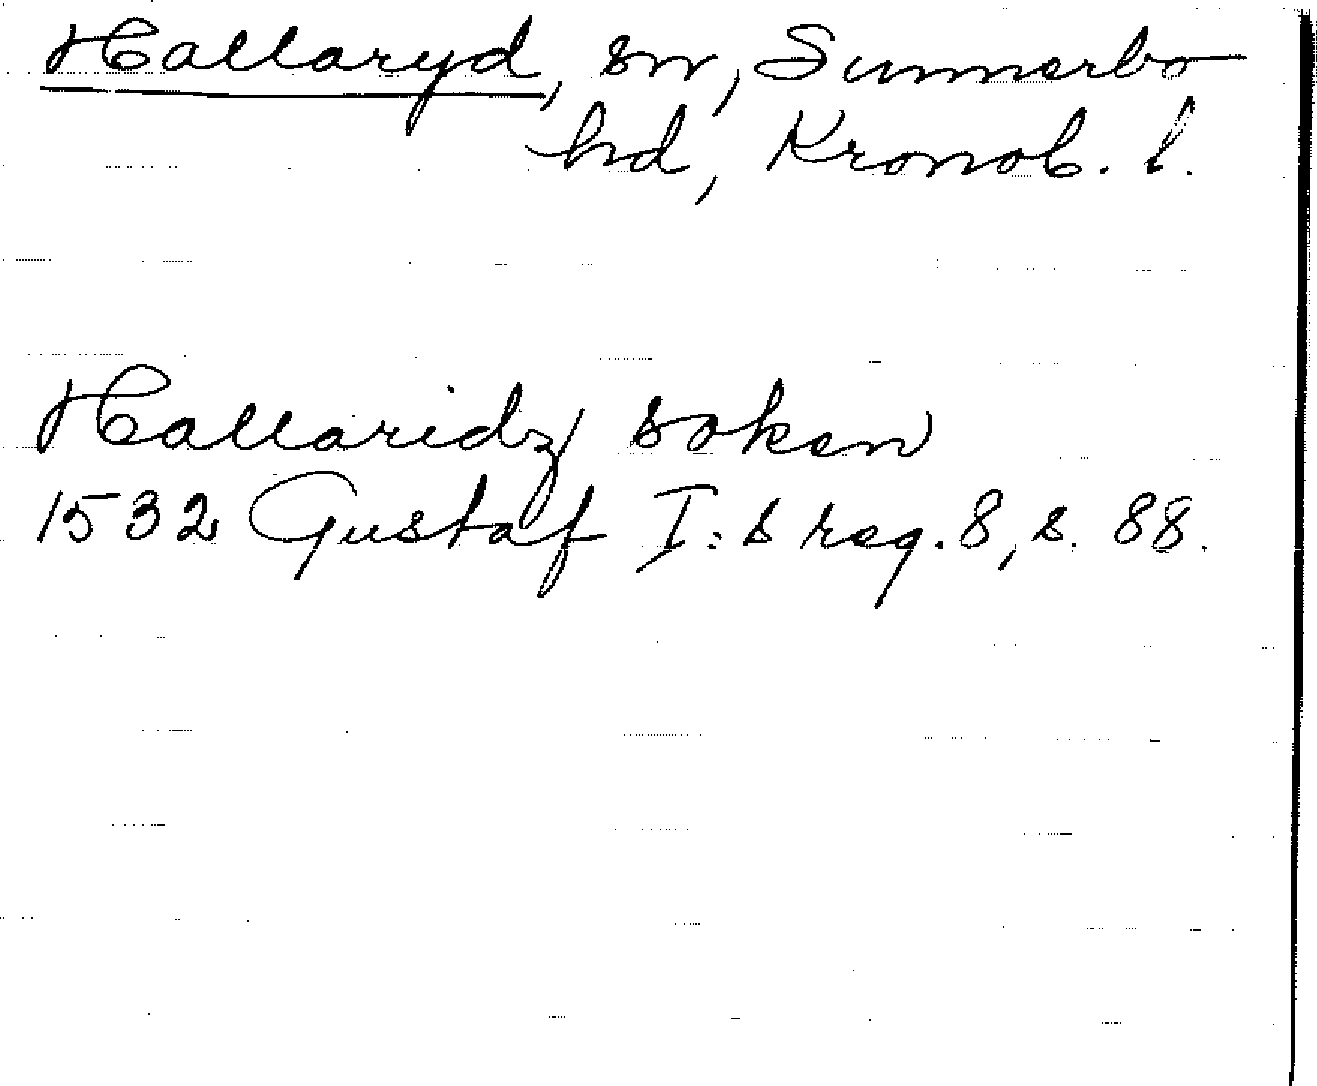 Hallaryd, sn, Sunnerbo
hd, Kronob. l.
Hallaridz soken
1532 Gustaf I:s reg. 8, s. 88.